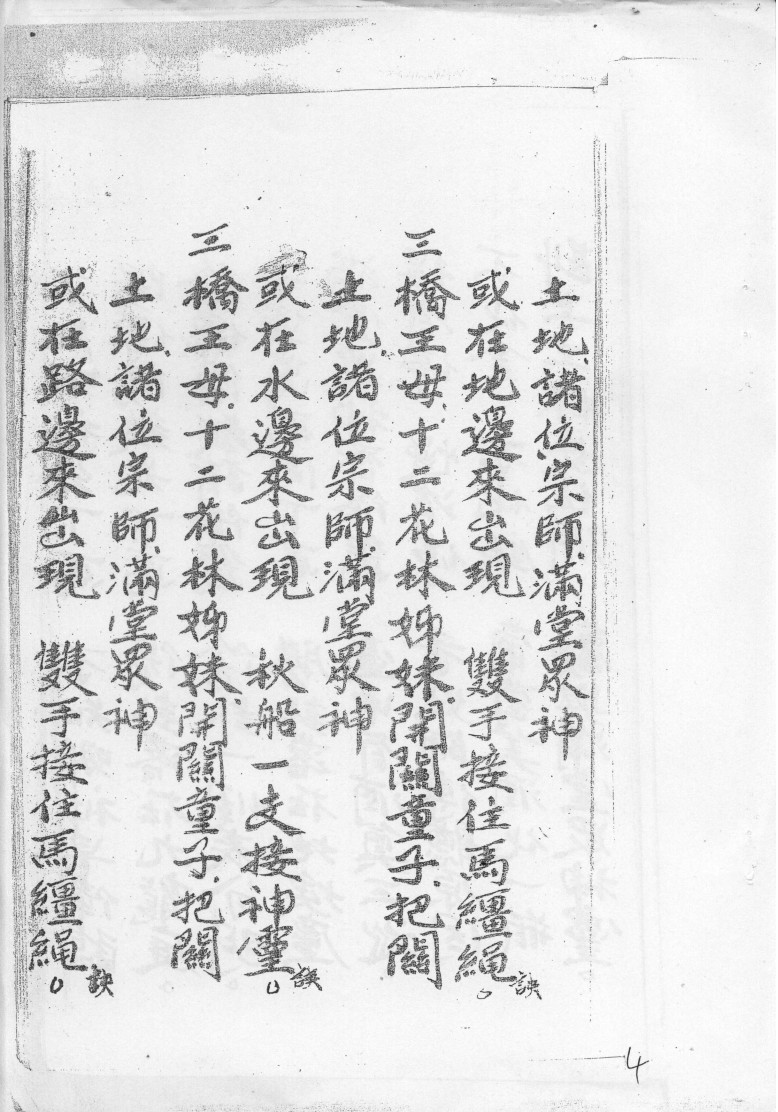 土地、諸位宗師、滿堂眾神
或在地邊來出現 雙手接住馬繮繩。訣
三橋王母、十二花林姊妹、開關童子、把關
土地、諸位宗師、滿堂眾神
或在水邊來出現 秋船一支接神靈。訣
三橋王母、十二花林姊妹、開關童子、把關
土地、諸位宗師、滿堂眾神
或在路邊來出現 雙手接住馬繮繩。訣
4